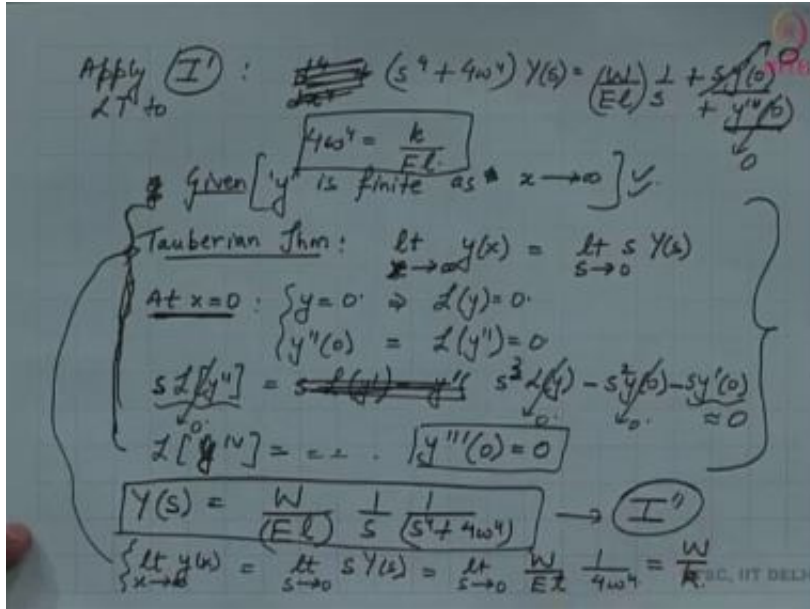 Apply I' : (s⁴ + 4ω⁴) Y(s) = (W/EI) 1/s + s y'(0)
LT to + y'''(0)
0
0
4ω⁴ = k/EI.
Given ['y' is finite as x → ∞]
Tauberian Thm: lt x→∞ y(x) = lt s→0 s Y(s)
At x=0 : { y = 0. ⇒ L(y) = 0.
y''(0) = L(y'') = 0
s L[y''] = s³ L(y) - s² y(0) - s y'(0)
0. 0. 0. ≈ 0
L[y^IV] = - - - . y'''(0) = 0
Y(s) = W/(EI) 1/s 1/(s⁴ + 4ω⁴) → I''
{ lt x→∞ y(x) = lt s→0 s Y(s) = lt s→0 W/EI 1/4ω⁴ = W/k.
IIT DELHI